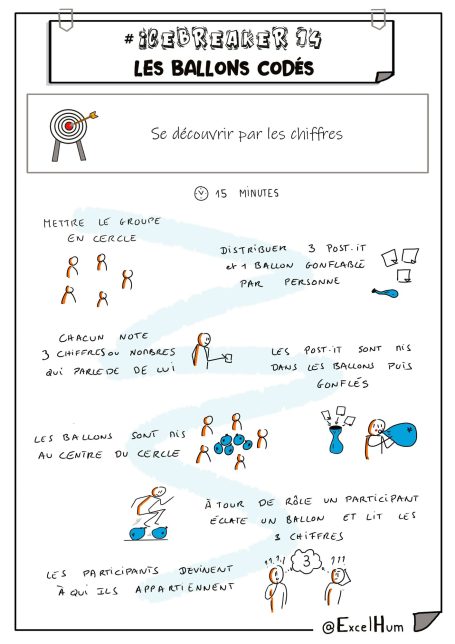 # ICEBREAKER 14
LES BALLONS CODÉS
Se découvrir par les chiffres
15 MINUTES
METTRE LE GROUPE
EN CERCLE
DISTRIBUER 3 POST-IT
et 1 BALLON GONFLABLE
PAR PERSONNE
CHACUN NOTE
3 CHIFFRES OU NOMBRES
QUI PARLE DE DE LUI
LES POST-IT SONT MIS
DANS LES BALLONS PUIS
GONFLÉS
LES BALLONS SONT MIS
AU CENTRE DU CERCLE
À TOUR DE RÔLE UN PARTICIPANT
ÉCLATE UN BALLON ET LIT LES
3 CHIFFRES
LES PARTICIPANTS DEVINENT
À QUI ILS APPARTIENNENT
???!
3
???
@ExcelHum